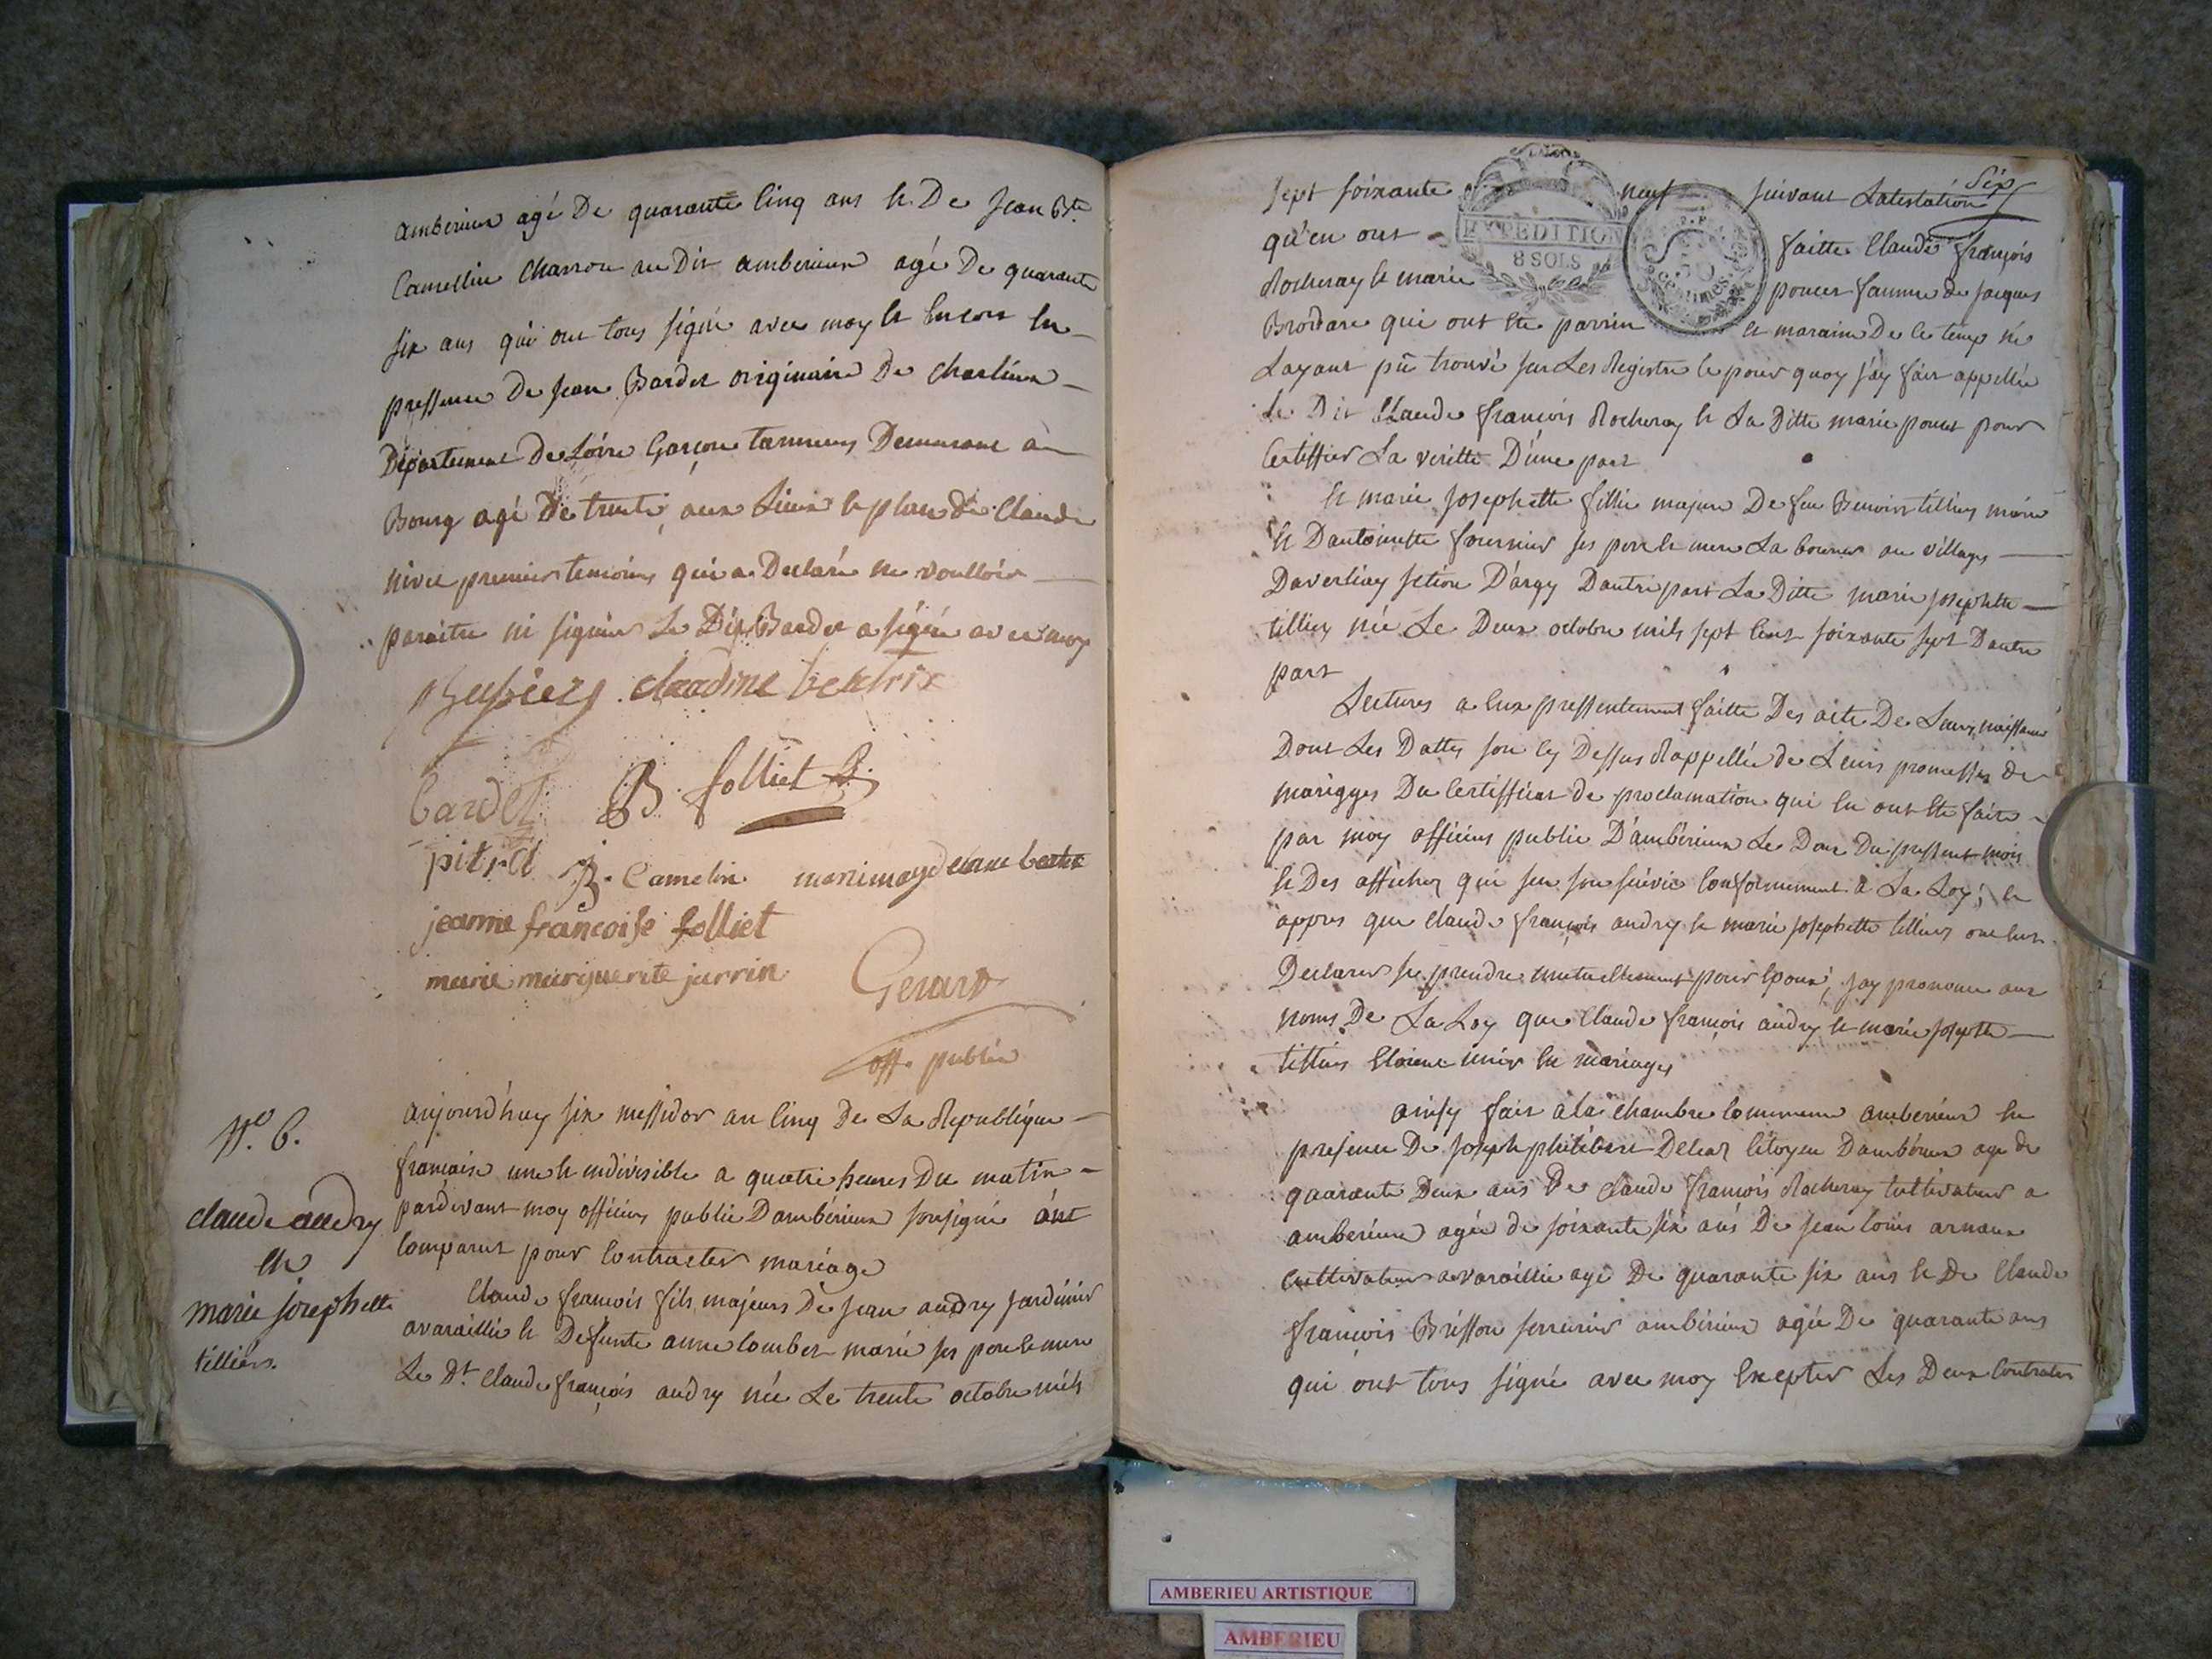 amberieux agé De quarante Cinq ans & De Jean Bte
Camellin Charron au Dit amberieux agé De quarante
six ans qui ont tous signé avec moy Et Encore En
pressence De Jean Bardet originaire De Charlieux
Département De Loire Garçon tanneurs Demeurant à
Bourg agé De trente aux Lieux
premier temoins qui a Declaré ne voulloir
paraitre ni signier Le Dit Bardet a signé avec moy
claudine beatrix
bardet B. folliet
pitrat B. Camelin
jeanne françoise folliet
marie marguerite jarrin Gerard
off. public
N.o 6.
claude audry
Et
marie josephette
tilliers.
aujourd'huy six messidor an Cinq De La Republique
francaise une Et indivisible a quatre heures Du matin
pardevant moy officiers public D'ambérieux sousigné ont
Comparut pour Contracter mariage
Claude francois fils majeurs De Jean audry Jardinier
avaraillie Et Defunte anne Combet marié ses pere Et mere
Le Dt. Claude françois audry née Le trente octobre mils
Sept
sept soixante neuf suivant Latestation
qu'en ont faitte Claude françois
Rocheray Et marie poncet famme de Jacques
Brodare qui ont Ete parrin Et maraine De Ce temp ne
Layant pû trouvé sur Les Registre C'e pour quoy j'ay fait appellée
Le Dit Claude francois Rocheray Et La Ditte marie poncet pour
Certiffier La veritte D'une part
Et marie Josephette fillie majure De feu Benoist tilliers marié
Et Dantoinette fournier ses pere Et mere La boureur au villages
Daverliaz Setion D'argy Dautre part La Ditte marie Josephette
tilliers née Le Deux octobre mils sept Cent soixante sept Dautre
part
Lectures a Eux pressentement faitte Des acte De Leurs naissance
Dont Les Dattes son Cy Dessus Rappellée de Leurs promesses de
mariages Du Certifficat de proclamation qui En ont Ete faite
par moy officiers public D'ambérieux Le Doux Du pressent mois
Et Des affiches qui sen son suivie Conformement a La Loy; Et
appres que Claude françois audry Et marie Josephette tilliers ont Eux
Declarer se prendre mutuellement pour Epoux, jay prononce aux
noms De La Loy que Claude françois audry Et marie Josephette
tilliers Etoient unir En mariages
ainsy fait a la Chambre Commune amberieux En
presence De Joseph philibert Citoyen Dambérieux agé de
quarante Deux ans De Claude francois Rocheray Cultivateur a
amberieux agée de soixante six ans De Jean Louis arnaux
Cultivateur avaraillie agé De quarante six ans Et De Claude
françois Brisson serrurier ambérieux agée De quarante ans
qui ont tous signé avec moy Excepter Les Deux Contractes
EXPEDITION
8 SOLS
50
Centimes
AMBERIEU ARTISTIQUE
AMBERIEU